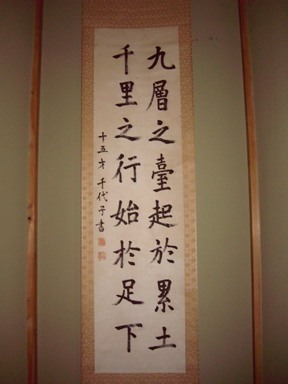 九層之臺起於累土
千里之行始於足下
十五才 千代子書